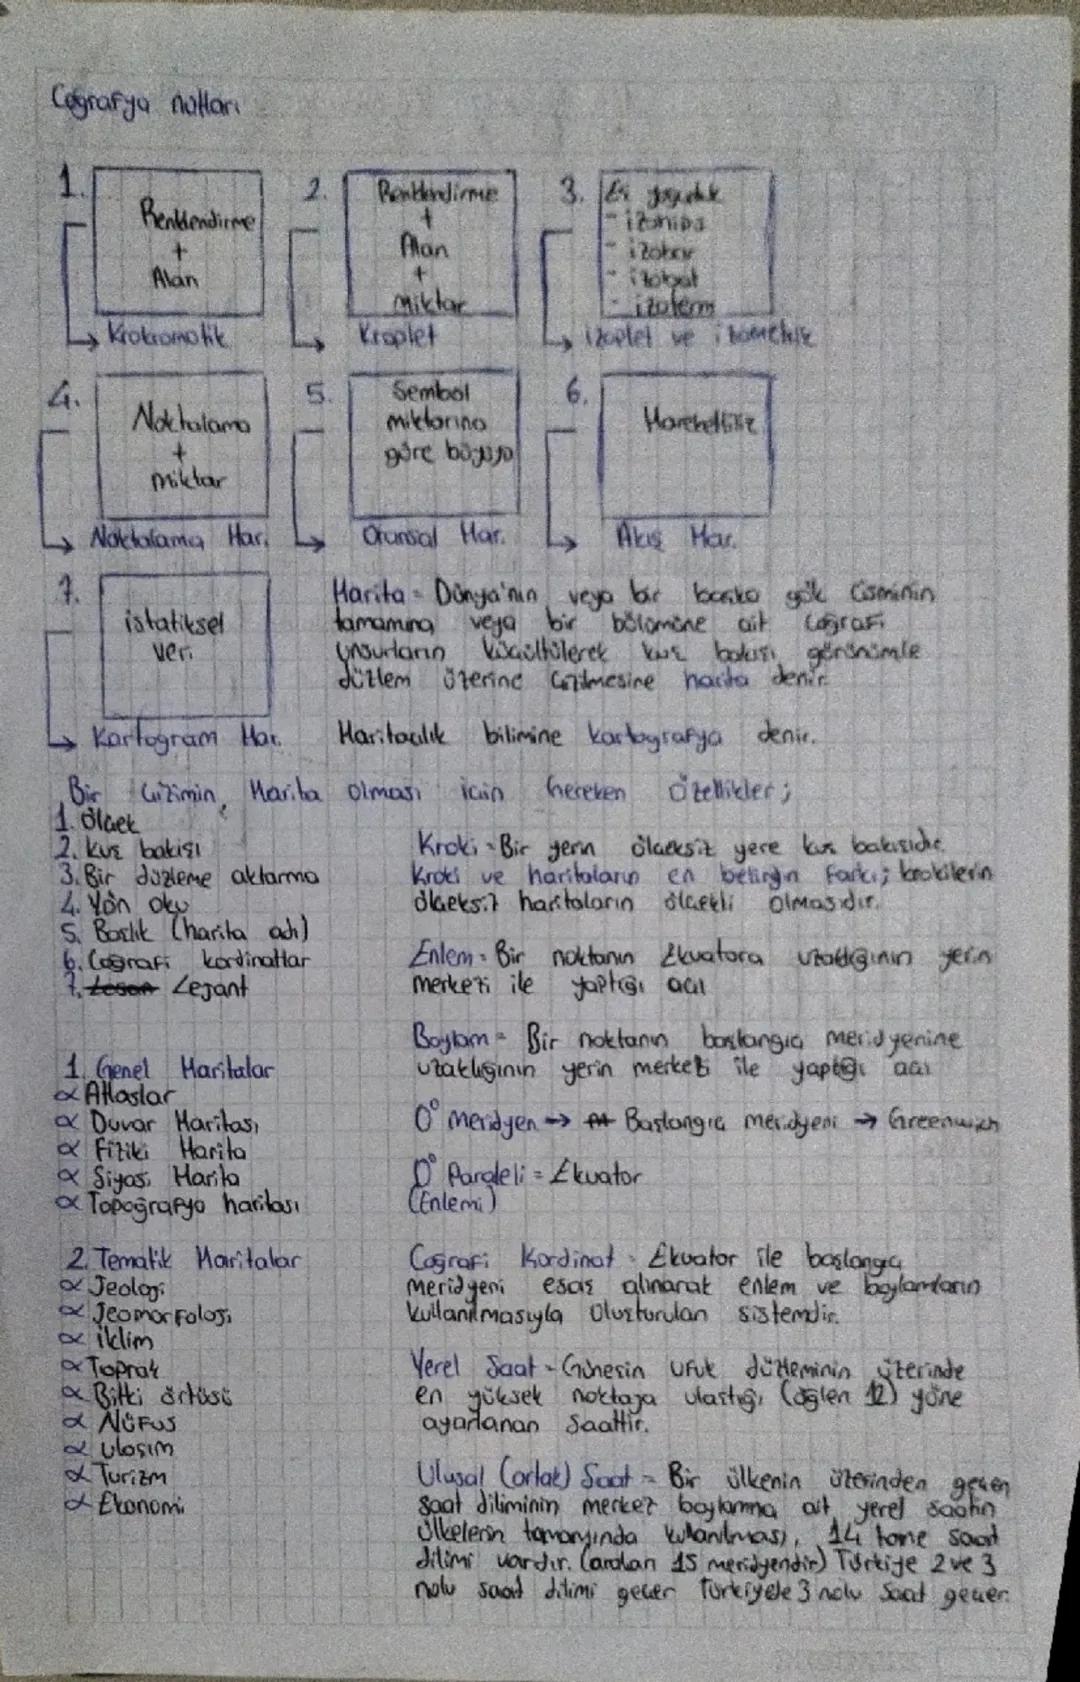 Coğrafya notları
1.
Renklendirme
+
Alan
Krokromatik
2.
Renklendirme
+
Alan
+
miktar
Kroplet
3.
Eş
- izohips
- izobar
- izobat
- izoterm
izoplet ve izometrik
4.
Noktalama
+
miktar
Noktalama Har.
5.
Sembol
miktarına
göre büyüyo
Oransal Har.
6.
Hareketlilik
Akış Har.
7.
istatiksel
veri
Kartogram Har.
Harita = Dünya'nın veya bir başka gök cisminin
tamamına veya bir bölümüne ait coğrafi
unsurların küçültülerek kuş bakışı görünümle
düzlem üzerine çizilmesine harita denir
Haritacılık bilimine kartografya denir.
Bir çizimin, Harita olması için Gereken Özellikler;
1. Ölçek
2. kuş bakışı
3. Bir düzleme aktarma
4. Yön oku
5. Başlık (harita adı)
6. Coğrafi kordinatlar
7. Lejant
1. Genel Haritalar
α Atlaslar
α Duvar Haritası
α Fiziki Harita
α Siyasi Harita
α Topoğrafya haritası
2. Tematik Haritalar
α Jeoloji
α Jeomorfoloji
α iklim
α Toprak
α Bitki örtüsü
α Nüfus
α ulaşım
α Turizm
α Ekonomi
Kroki = Bir yerin ölçeksiz yere kuş bakışıdır.
Kroki ve haritaların en belirgin farkı; krokilerin
ölçeksiz haritaların ölçekli olmasıdır.
Enlem = Bir noktanın Ekvatora uzaklığının yerin
merkezi ile yaptığı açı
Boylam = Bir noktanın başlangıç meridyenine
uzaklığının yerin merkezi ile yaptığı açı
0° meridyen → Başlangıç meridyeni → Greenwich
0° Paraleli = Ekvator
(Enlemi)
Coğrafi Kordinat = Ekvator ile başlangıç
meridyeni esas alınarak enlem ve boylamların
kullanılmasıyla oluşturulan sistemdir.
Yerel Saat = Güneşin ufuk düzleminin üzerinde
en yüksek noktaya ulaştığı (öğlen 12) yöne
ayarlanan saattir.
Ulusal (ortak) Saat = Bir ülkenin üzerinden geçen
saat diliminin merkez boylamına ait yerel saatin
ülkelerin tamamında kullanılması, 14 tane saat
dilimi vardır. (araları 15 meridyendir) Türkiye 2 ve 3
nolu saat dilimi geçer Türkiyede 3 nolu saat geçer.